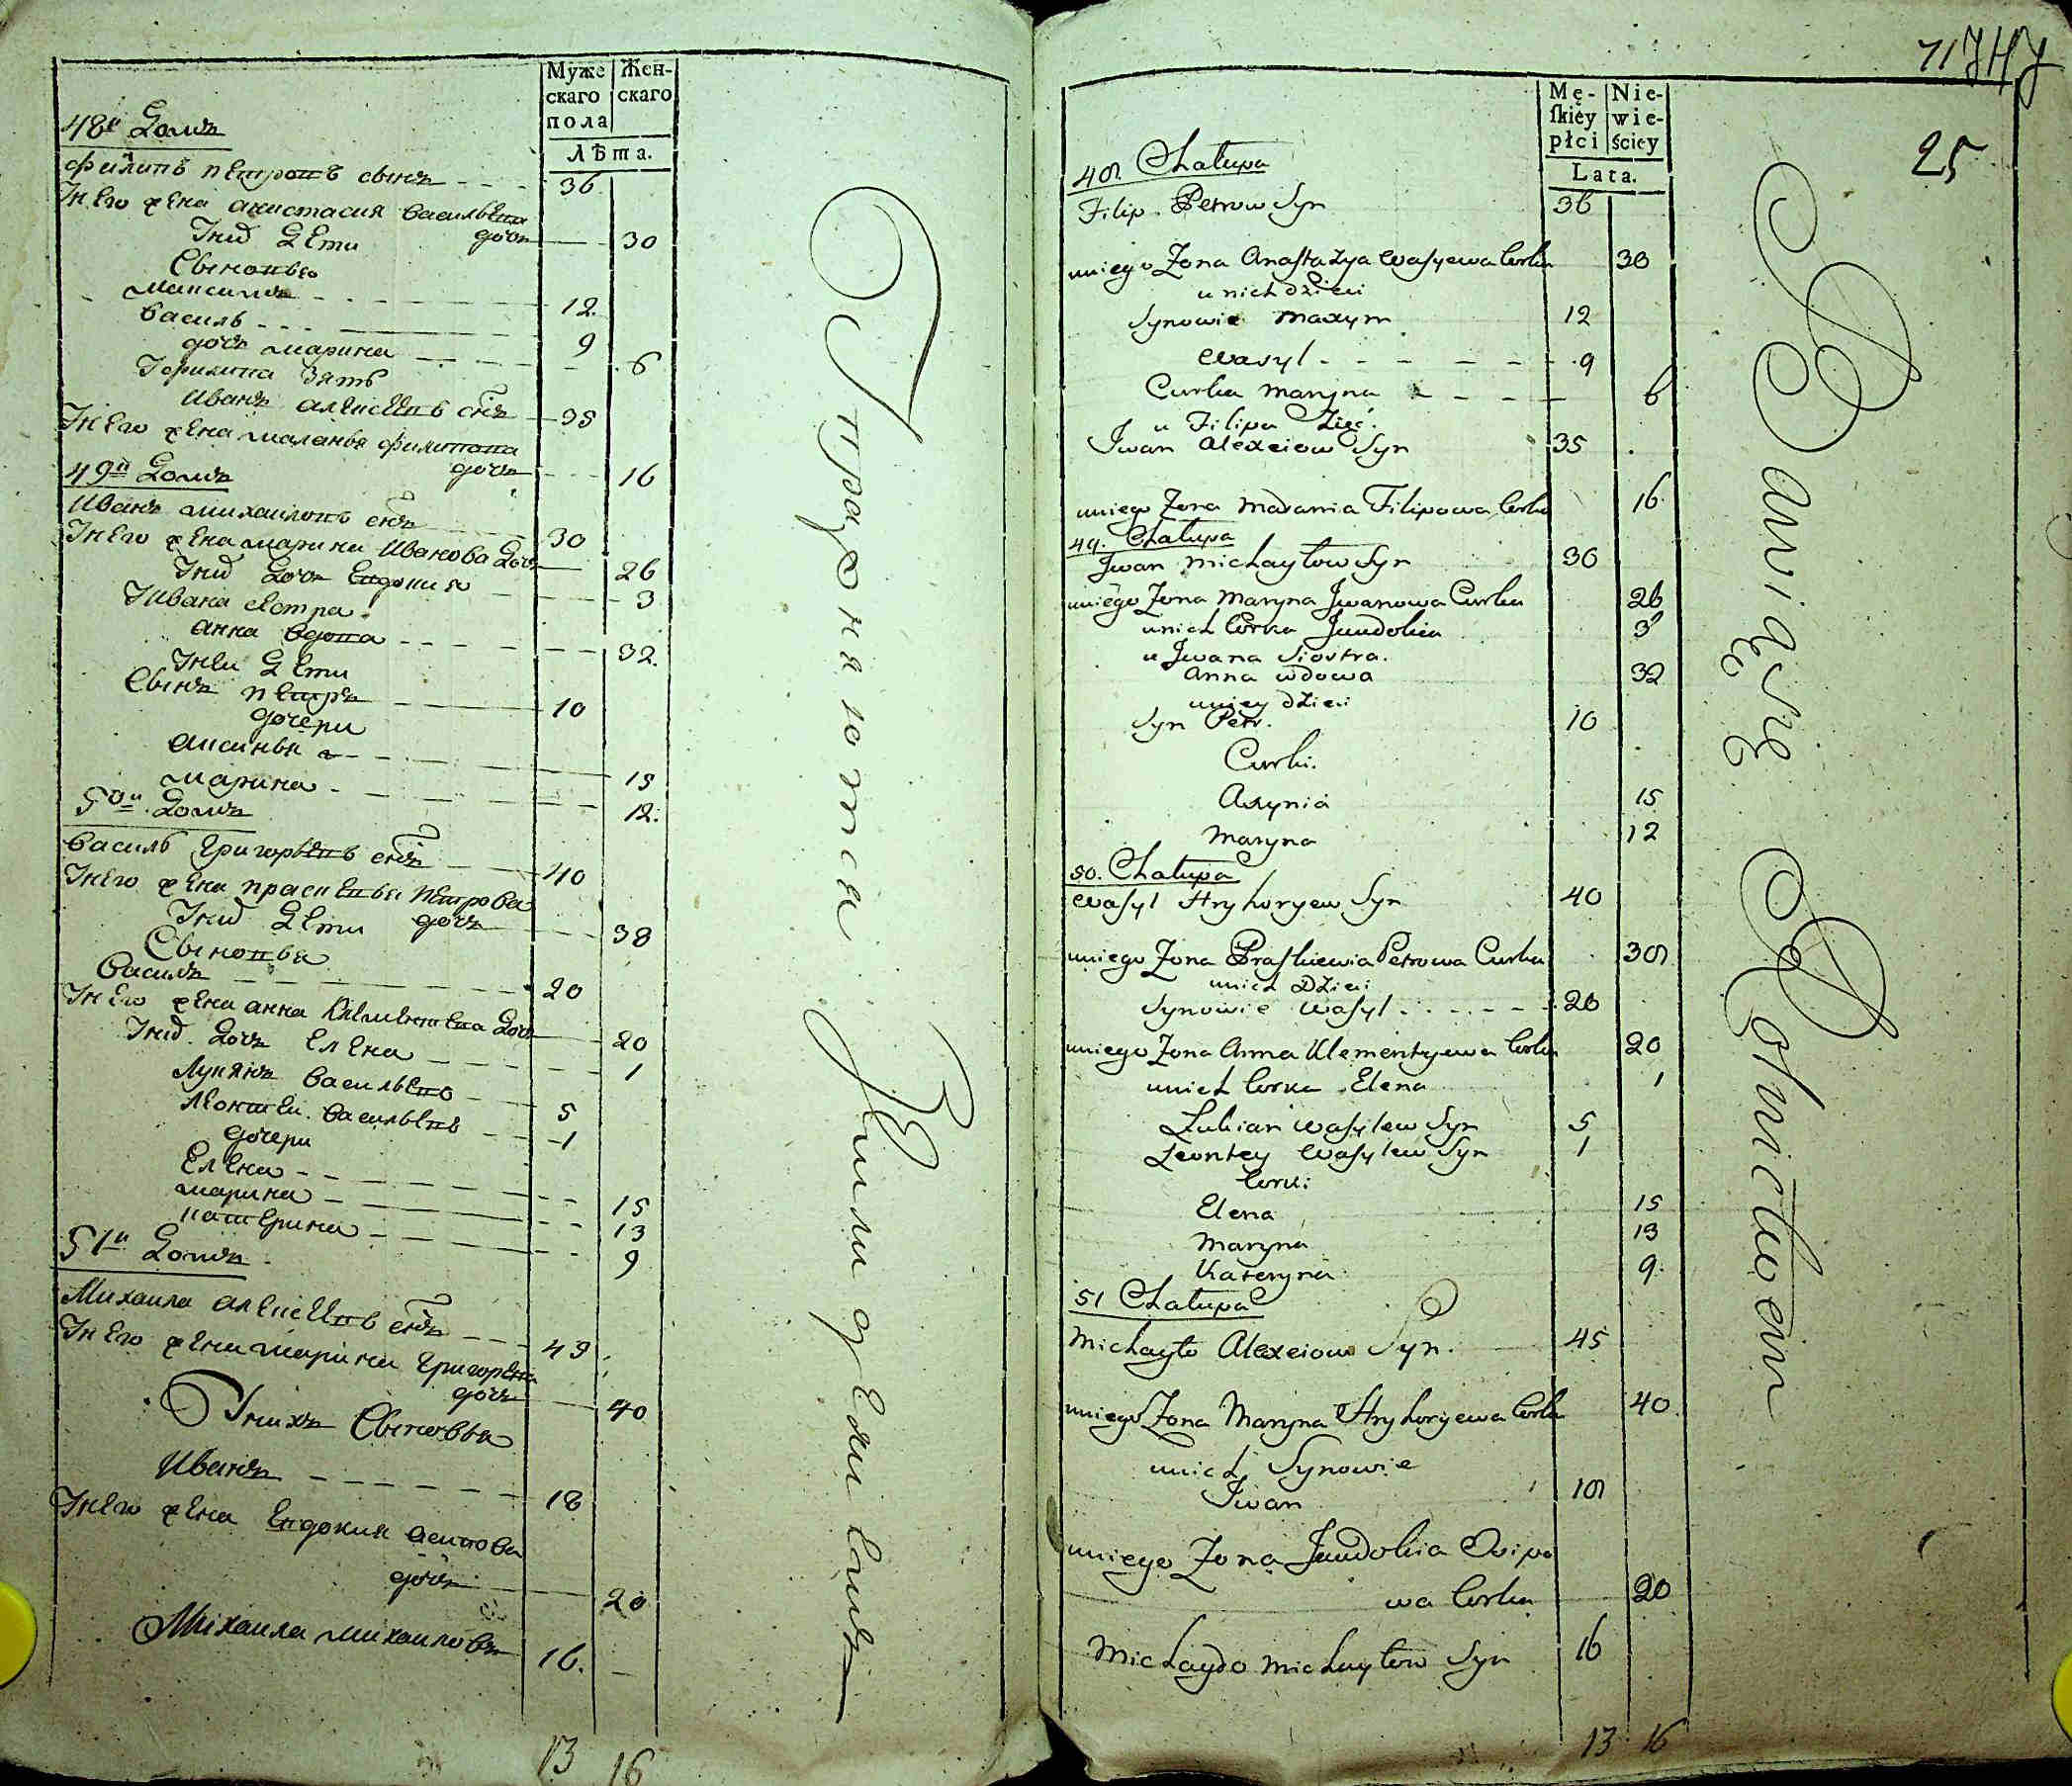 Муже
скаго
пола
Жен-
скаго
Лѣта.
48й Домъ
Филипъ Петровъ сынъ - - - 36
У него жена Анастасия Васильева
дочь - - 30
У них дети
Сыновья
Максимъ - - - - 12.
Василь - - - 9
дочь Марина - - - - 6
У Филипа зять
Иванъ Алексеевъ снъ - 35
У него жена Маланья Филипова
дочь - - 16
49й Домъ
Иванъ Михаиловъ снъ - - 30
У него жена Марина Иванова дочь - 26
У них дочь Евдокия - - - 3
У Ивана сестра
Анна вдова - - - - 32.
У неи дети
Сынъ Петръ - - - 10
дочери
Аксинья - - - - 15
Марина - - - - 12.
50й Домъ
Василь Григорьевъ снъ - - 40
У него жена Прасковья Петрова
дочь - - 38
У них дети
Сыновья
Василь - - - - 20
У него жена Анна Клементева дочь - 20
У них дочь Елена - - - 1
Лукянъ Васильевъ - - 5
Леонтеи Васильевъ - - 1
дочери
Елена - - - - 15
Марина - - - - 13
Катерина - - - - 9
51й Домъ
Михаила Алексеевъ снъ - - 45
У него жена Марина Григорева
дочь - - 40
У нихъ Сыновья
Иванъ - - - - 18
У него жена Евдокия Осипова
дочь - - 20
Михаила Михаиловъ 16. -
13 16
Упражняются Земледелиемъ
71
25
Mę-
ſkiéy
płci
Nie-
wie-
ściey
Lata.
48 Chałupa
Filip Petrow Syn 36
u niego Żona Anastazya Wasyewa Corka 30
u nich dzieci
Synowie Maxym 12
Wasyl - - - - - - 9
Curka Maryna - - - - 6
u Filipa Zięć.
Iwan Alexeiow Syn 35
u niego Żona Madania Filipowa Corka 16
49. Chałupa
Iwan Michayłow Syn 30
u niego Żona Maryna Iwanowa Curka 26
u nich Corka Jewdokia 3
u Iwana Siostra.
Anna Wdowa 32
u niey dzieci
Syn Petr. 10
Curki.
Axynia 15
Maryna 12
50. Chałupa
Wasyl Hryhoryew Syn 40
u niego Żona Praskiewia Petrowa Curka 38
u nich Dzieci
Synowie Wasyl - - - - - 20
u niego Żona Anna Klementyewa Corka 20
u nich Corka Elena 1
Łukian Wasylew Syn 5
Leontey Wasylew Syn 1
Corki
Elena 15
Maryna 13
Kateryna 9.
51 Chałupa
Michayło Alexeiow Syn. 45
u niego Żona Maryna Hryhoryewa Corka 40
u nich Synowie
Iwan 18
u niego Żona Jewdokia Osipo
wa Corka 20
Michaydo Michayłow Syn 16
13 16
Bawią się Rolnictwem